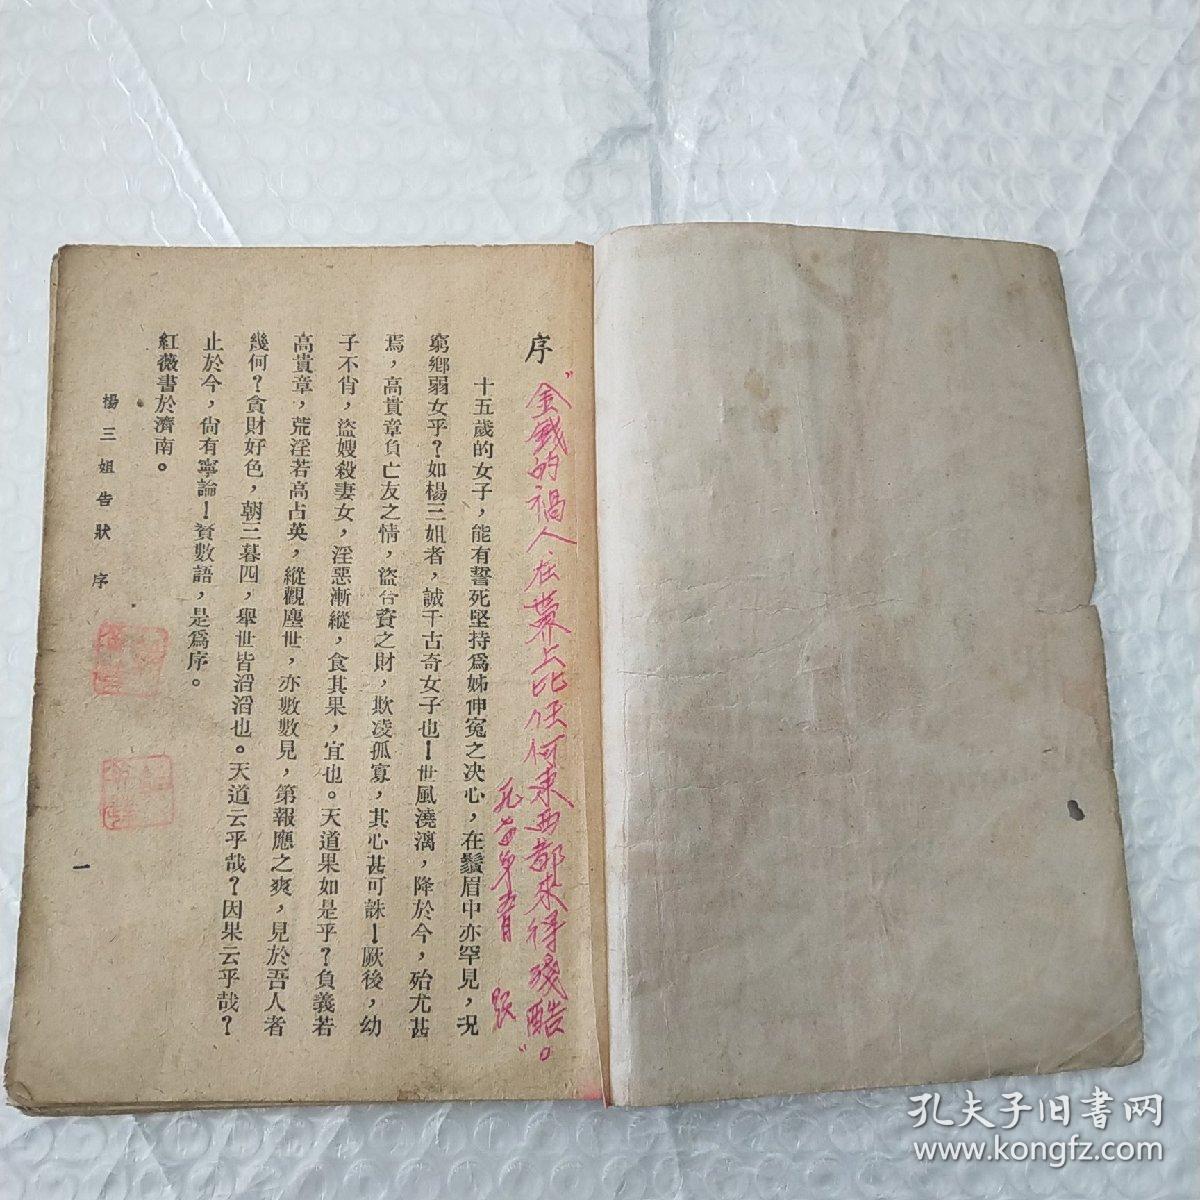 序
“金錢的禍人在世界上比任何東西都來得殘酷。”
十五歲的女子，能有誓死堅持爲姊伸冤之決心，在鬚眉中亦罕見，况
窮鄉弱女乎？如楊三姐者，誠千古奇女子也！世風澆漓，降於今，殆尤甚
焉，高貴章負亡友之情，盜合資之財，欺凌孤寡，其心甚可誅！厥後，幼
子不肖，盜嫂殺妻女，淫惡漸縱，食其果，宜也。天道果如是乎？負義若
高貴章，荒淫若高占英，縱觀塵世，亦數數見，第報應之爽，見於吾人者
幾何？貪財好色，朝三暮四，舉世皆滔滔也。天道云乎哉？因果云乎哉？
止於今，尙有寧論！贅數語，是爲序。
紅薇書於濟南。
楊三姐告狀 序
一
孔夫子旧書网
www.kongfz.com